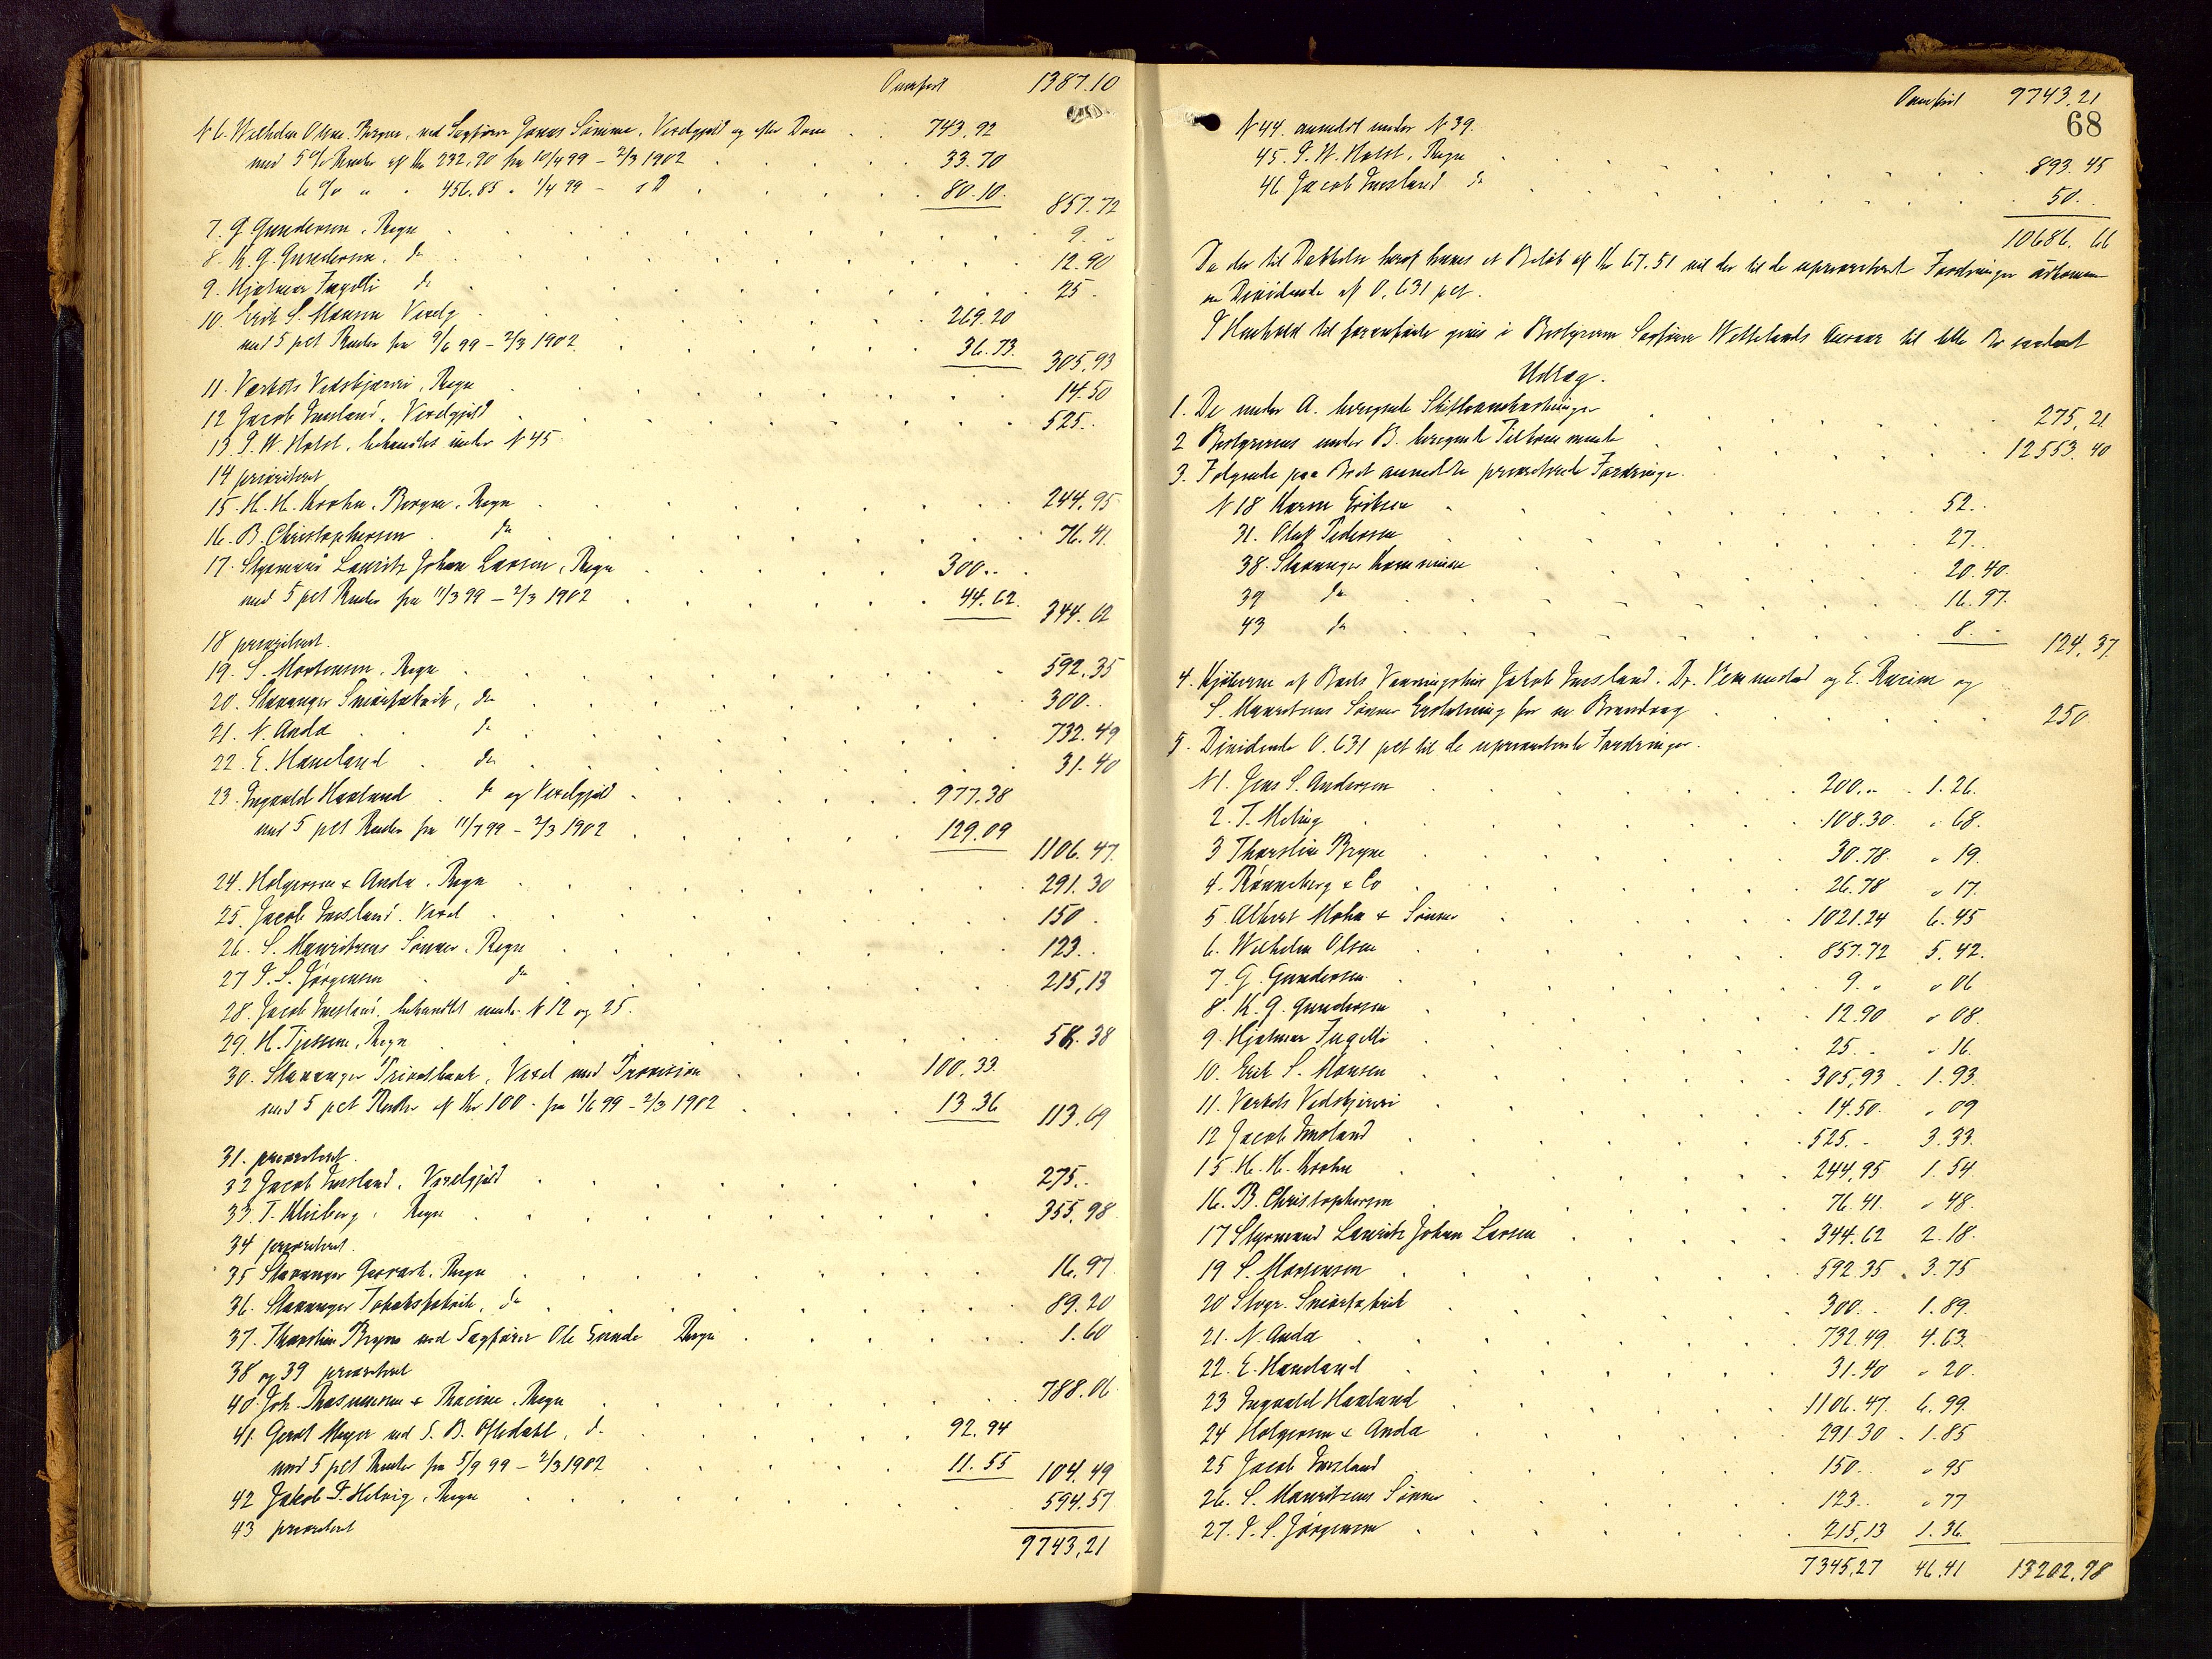 Overført 1387.10
N 6. Wilhelm Olsen. Bergen, ved Sagfører Jonas Sømme. Vexelgjæld og efter Dom 743.92
med 5 % Renter af Kr 232.20 fra 10/4 99 – 2/3 1902 33.70
6 % " " 456.85 " 1/4 99 – s D 80.10. 857.72
7. G. Gundersen. Regn 9. -
8. K. G. Gundersen. do 12.90
9. Hjalmar Fugelli do 25 -
10. Erik S. Hansen Vexelg 269.20
med 5 pct Renter fra 9/6 99 – 2/3 1902 36.73. 305.93
11. Værkets Vedskjæreri, Regn 14.50
12 Jacob Imsland, Vexelgjæld 525..
13. P. W. Holst, behandlet under N 45.
14 prioriteret
15. H. H. Krohn. Bergen. Regn 244.95
16. B. Christophersen do 76.41
17. Styrmand Lauritz Johan Larsen, Regn 300..
med 5 pct Renter fra 11/3 99 – 2/3 1902 44.62. 344.62
18 prioriteret.
19. S. Mortensen. Regn 592.35
20. Stavanger Smørfabrik, do 300..
21. N. Anda do 732.49
22. E. Haneland do 31.40
23. Ingvald Haaland do og Vexelgjæld 977.38
med 5 pct Renter fra 11/7 99 – 2/3 1902 129.09 1106.47.
24. Holgersen & Anda. Regn 291.30
25. Jacob Imsland. Vexel 150 -
26. S. Mauritzens Sønner. Regn 123..
27 P. S. Jørgensen do 215,13
28. Jacob Imsland, behandlet under N 12 og 25.
29. H. Tjessem, Regn 58.38
30. Stavanger Privatbank, Vexel med Provision 100.33.
med 5 pct Renter af Kr 100 - fra 1/6 99 – 2/3 1902 13.36 113.69
31. prioriteret.
32 Jacob Imsland, Vexelgjæld 275..
33. T. Kleiberg, Regn 355,98
34 prioriteret.
35 Stavanger Gasværk. Regn 16.97
36. Stavanger Tobaksfabrik, do 89.20
37. Thorstein Bryne ved Sagfører Ole Sunde Regn 1.60
38 og 39 prioriteret
40. Joh. Rasmussen & Racine. Regn 788.06
41. Gerdt Meyer ved S. B. Oftedahl, do 92.94
med 5 pct Renter fra 5/9 99 – 2/3 1902 11.55 104.49
42 Jakob P. Helvig, Regn 594.57
43 prioriteret
9743,21
Overført 9743,21
68
N 44. anmeldt under N 39.
45. P. W. Holst. Regn 893.45
46 Jacob Imsland do 50..
10686.66
Da der til Dækkelse heraf haves et Beløb af Kr 67.51 vil der til de uprioriterte Fordringer udkomme
en Dividende af 0,631 pct.
I Henhold til foranførte gives i Bestyreren Sagfører Wettelands Ansvar til dette Bo saadant
Udlæg.
1. De under A. beregnede Skifteomkostninger 275,21
2 Bestyrerens under B. beregnede Tilkommende 12553.40
3. Følgende paa Boet anmeldte prioriterede Fordringer.
N 18 Karen Eriksen 52..
31. Oluf Pedersen 27..
38. Stavanger Kommune 20.40.
39 do 16.97.
43 do 8. - 124,37
4. Kjøberne af Boets Vaaningshus Jakob Imsland. Dr. Vennestad og E. Racine og
S. Mauritzens Sønner Erstatning for en Brandvæg 250
5. Dividende 0.631 pct til de uprioriterede Fordringer.
N 1. Jens S. Andersen 200.. 1.26.
2. T. Meling 108.30. " 68.
3 Thorstein Bryne 30.78. " 19.
4. Rønneberg & Co 26.78 " 17.
5 Albert Mohn & Sønner 1021.24 6.45
6. Wilhelm Olsen 857.72 5.42.
7. G. Gundersen 9. " " 06
8. K. G. Gundersen 12.90 " 08.
9. Hjalmar Fugelli 25.. " 16.
10. Erik S. Hansen 305,93 1.93.
11. Værkets Vedskjæreri 14.50. " 09
12 Jacob Imsland 525.. 3.33.
15. H. H. Krohn 244,95 1.54
16. B. Christophersen 76.41. " 48.
17 Styrmand Lauritz Johan Larsen 344.62 2.18.
19 S. Mortensen 592.35 3.75
20 Stvgr. Smørfabrik 300.. 1.89.
21. N. Anda 732.49 4.63.
22. E. Haneland 31.40 " 20.
23 Ingvald Haaland 1106.47. 6.99.
24 Holgersen & Anda 291.30 1.85
25 Jacob Imsland 150.. " 95
26. S. Mauritzens Sønner 123.. " 77
27. P. S. Jørgensen 215,13 1.36.
7345,27 46.41 13202,98